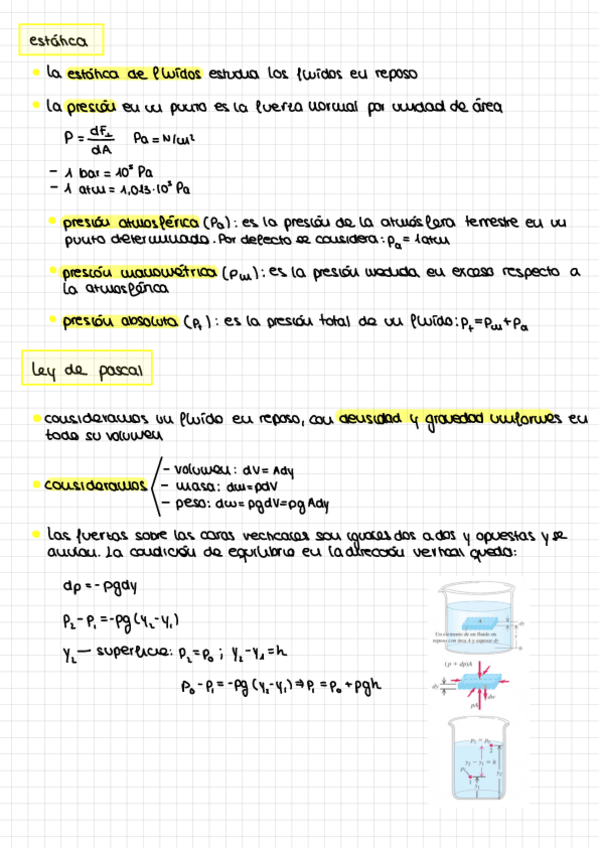 estática
la estática de fluidos estudia los fluidos en reposo
la presión en un punto es la fuerza normal por unidad de área
P = dF⊥/dA Pa = N/m²
- 1 bar = 10⁵ Pa
- 1 atm = 1,013·10⁵ Pa
presión atmosférica (Pa): es la presión de la atmósfera terrestre en un
punto determinado. Por defecto se considera: pa = 1atm
presión manométrica (pm): es la presión medida en exceso respecto a
la atmosférica
presión absoluta (pt): es la presión total de un fluido: pt = pm + pa
ley de pascal
consideramos un fluido en reposo, con densidad y gravedad uniformes en
todo su volumen
consideramos
- volumen: dV = Ady
- masa: dm = ρdV
- peso: dw = ρgdV = ρgAdy
las fuerzas sobre las caras verticales son iguales dos a dos y opuestas y se
anulan. La condición de equilibrio en la dirección vertical queda:
dp = -ρgdy
P₂ - P₁ = -ρg (y₂ - y₁)
y₂ — superficie: P₂ = P₀ ; y₂ - y₁ = h
P₀ - P₁ = -ρg (y₂ - y₁) ⇒ P₁ = P₀ + ρgh
A
dy
Un elemento de un fluido en
reposo con área A y espesor dy
(p + dp)A
dy
dw
pA
p₂ = p₀
2
y₂ - y₁ = h
p₁
1
y₂
y₁